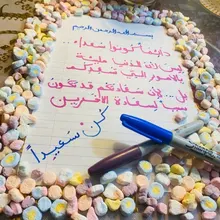 بسم الله الرحمن الرحيم
دائماً كونوا سعداء..
ليس لأن الدنيا مليئة
بالأمور التي تسعدك
بل.. لأن سعادتكم قد تكون
سبباً لسعادة الآخرين
كن سعيداً